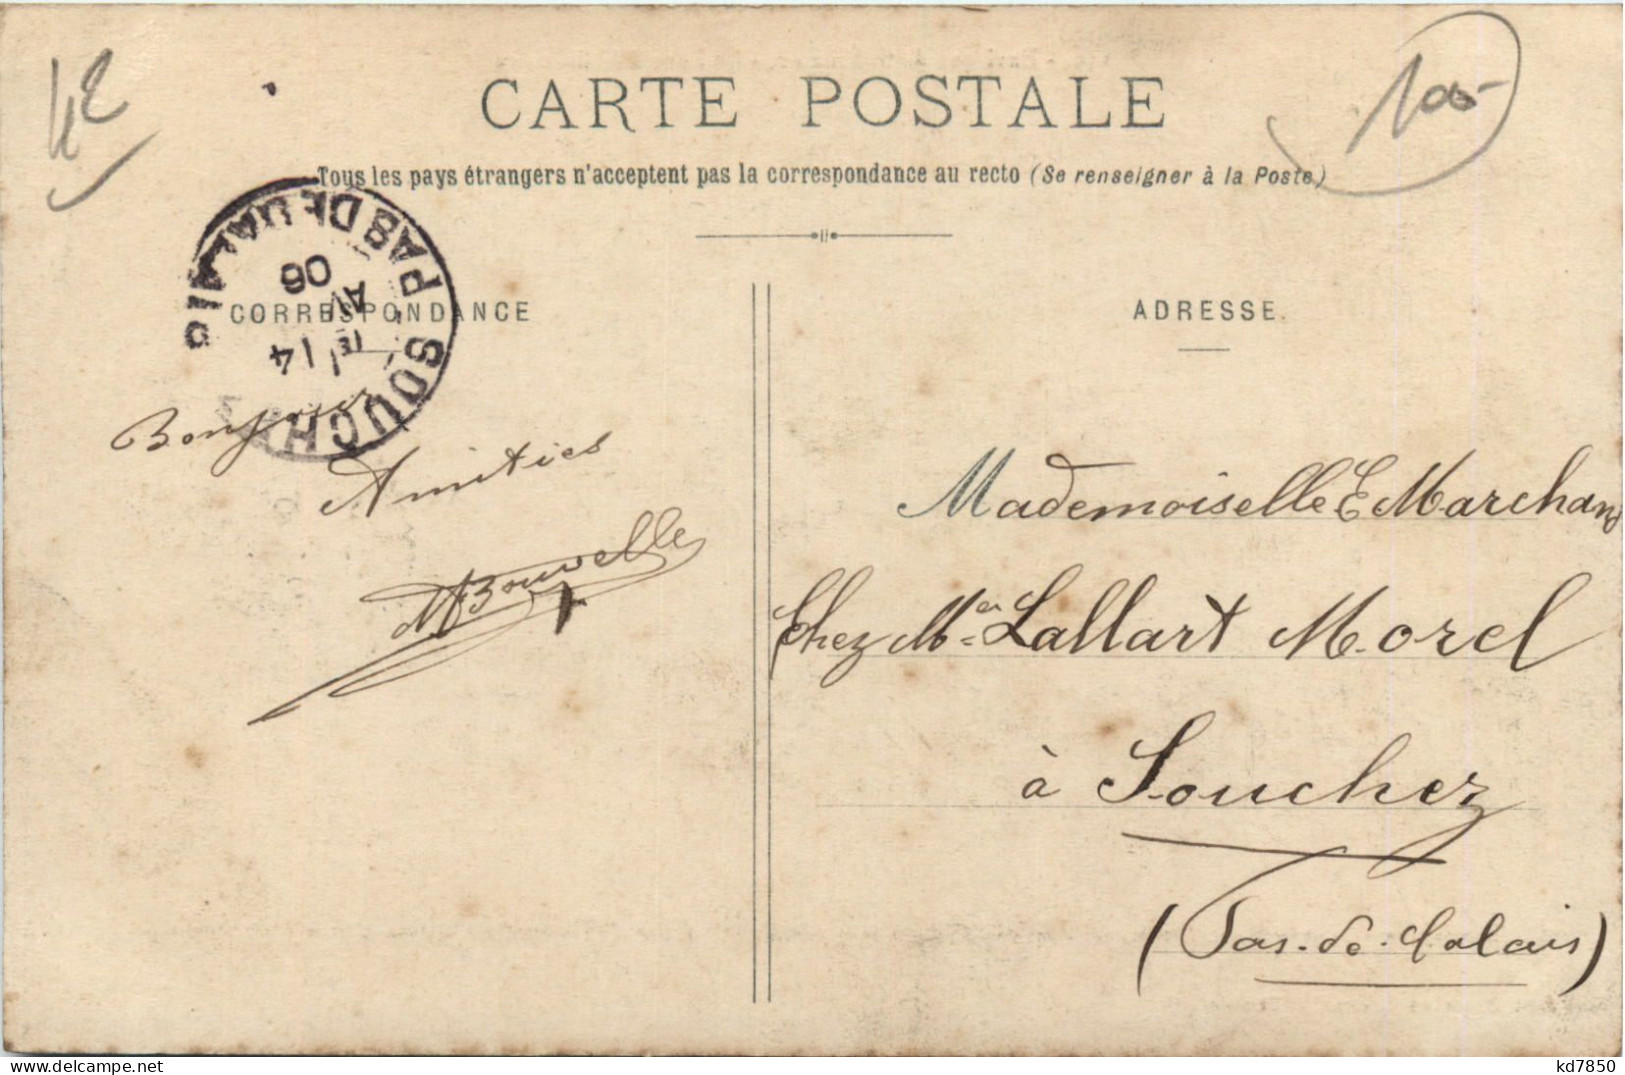 42
100-
CARTE POSTALE
Tous les pays étrangers n'acceptent pas la correspondance au recto (Se renseigner à la Poste)
CORRESPONDANCE
SOUCHEZ PAS DE CALAIS
14
AV
06
Bonjour
Amitiés
Bouvelle
ADRESSE.
Mademoiselle E Marchand
Chez Mer Lallart Morel
à Souchez
(Pas-de-Calais)
kd7850